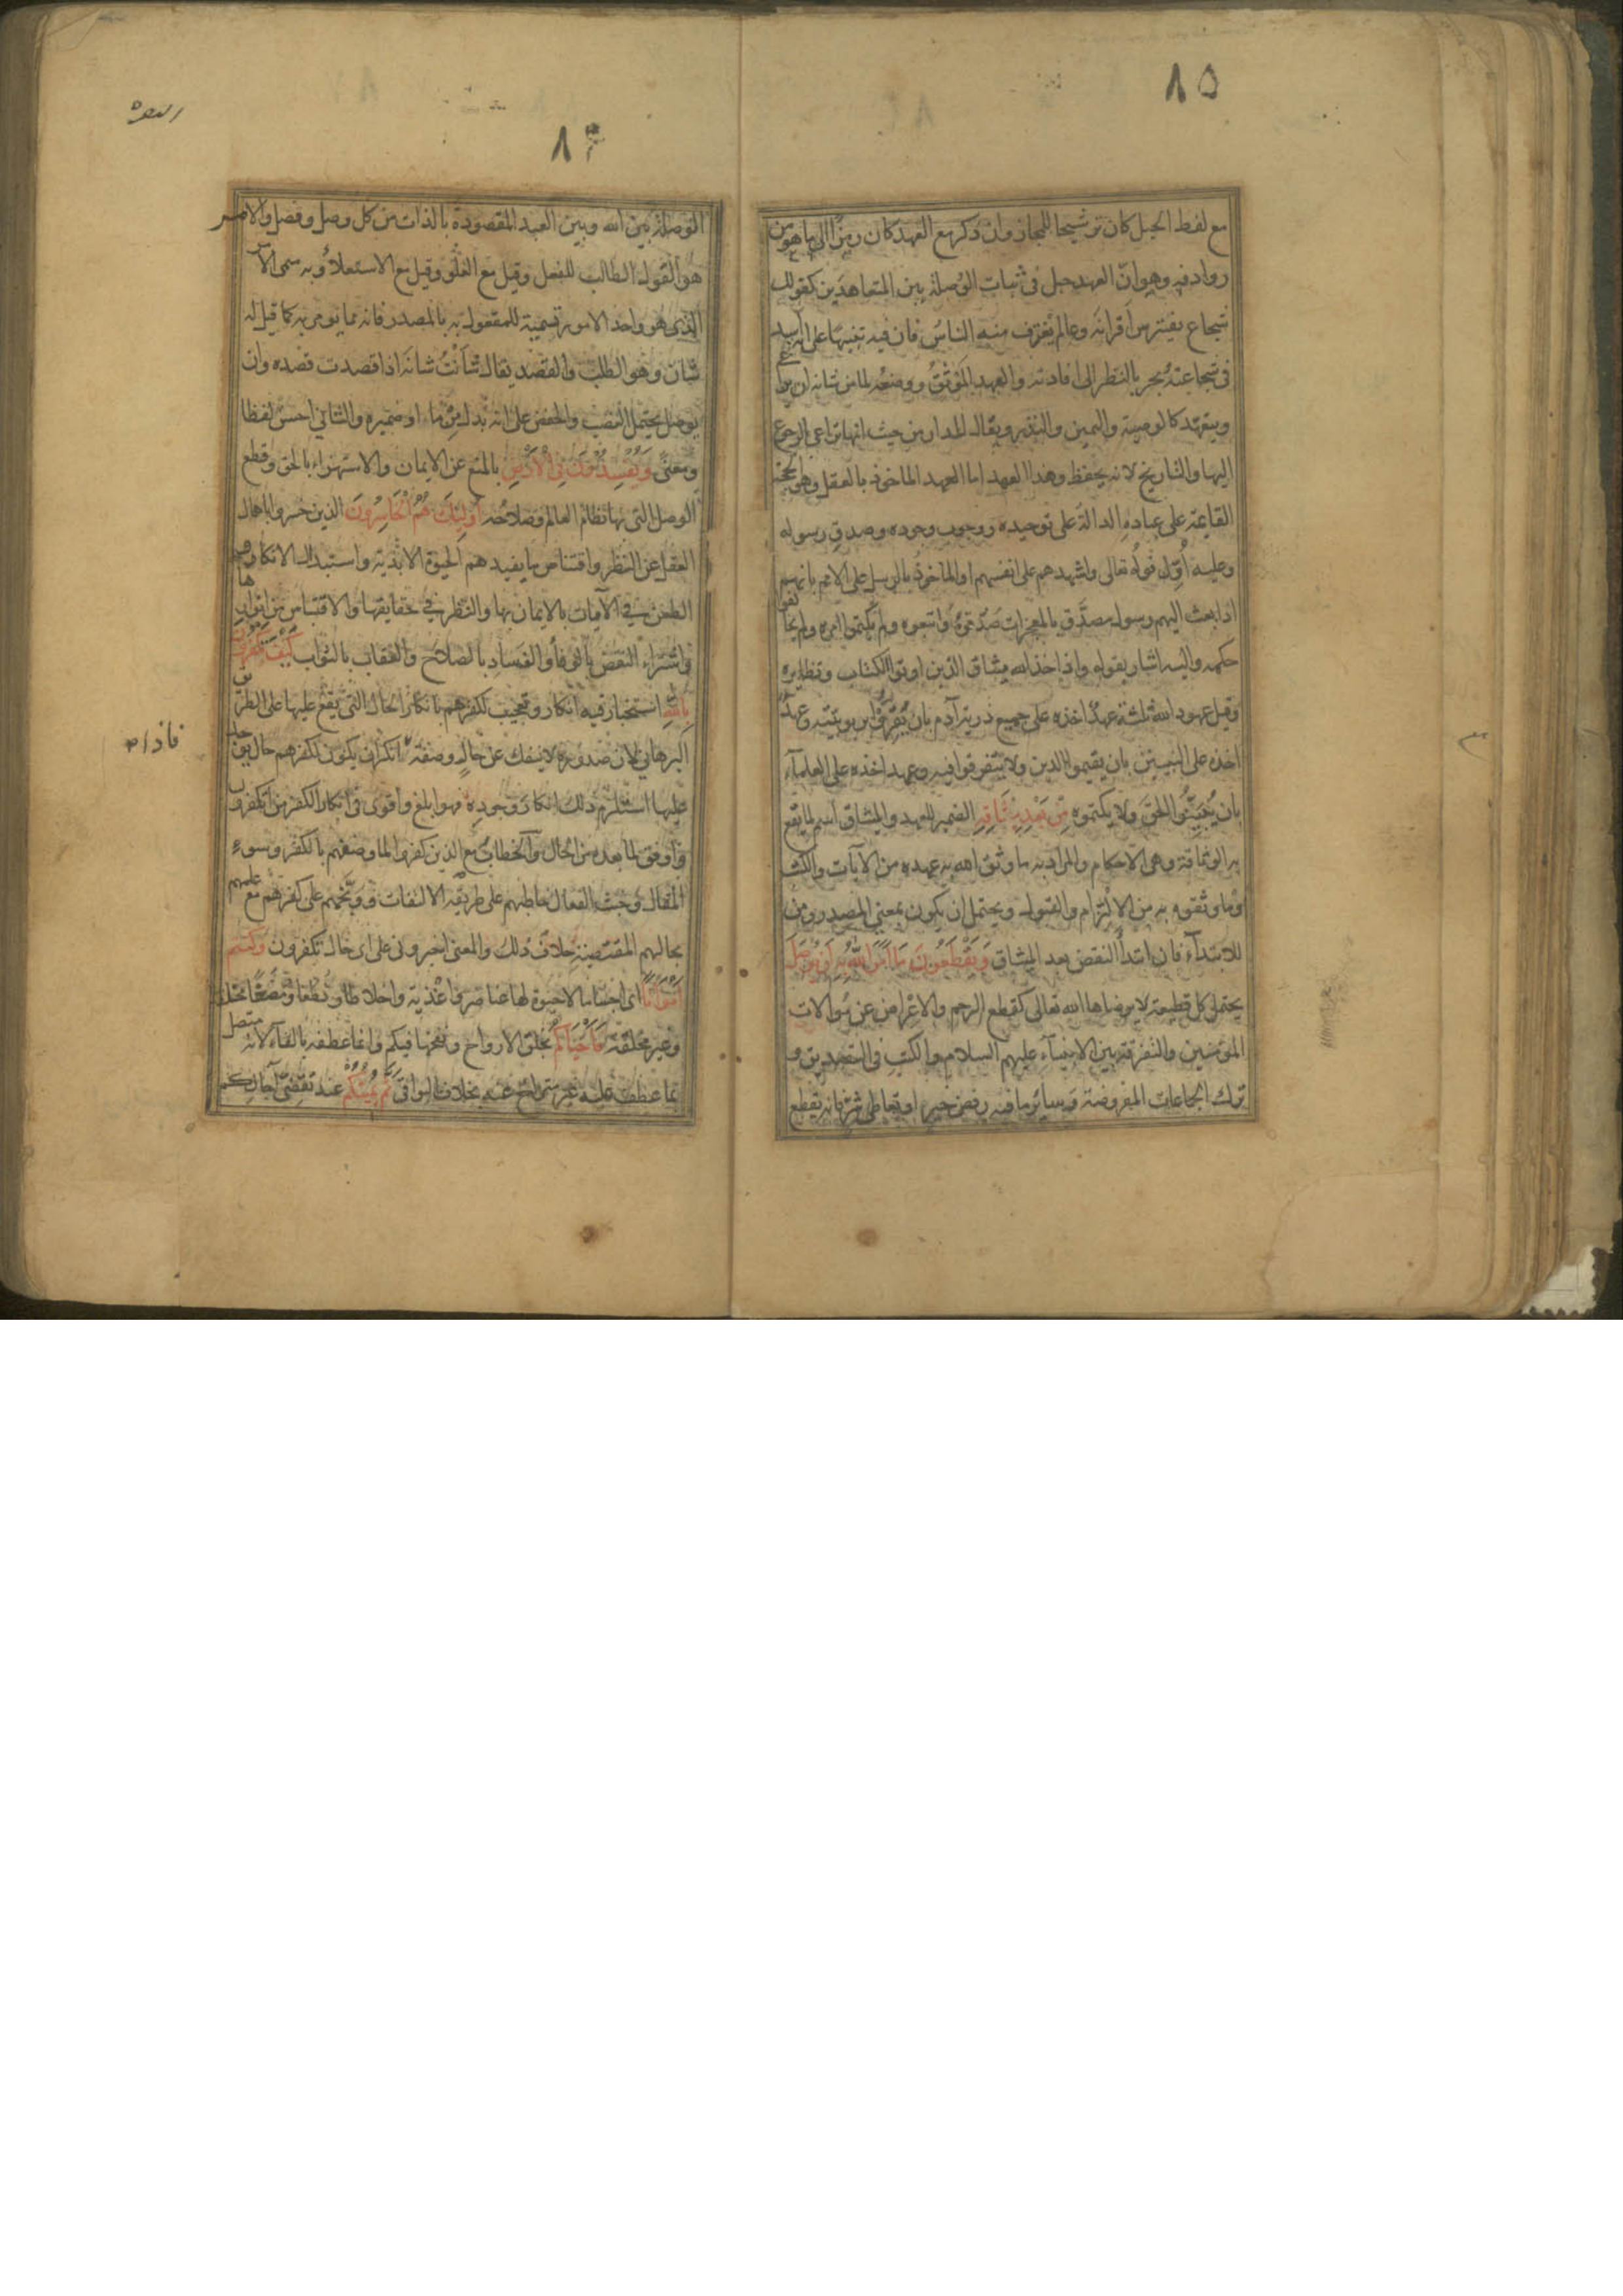 ٨٥
مع لفظ الحبل كان ترشيحا للمجاز وان ذكر مع العهد كان رمزا الى ما هو من
روادفه وهو انّ العهد حبل فى ثبات الوُصلة بين المتعاهدَين كقولك
شجاع يفترس اقرانَه وعالم يغترف منه الناسُ فان فيه تنبيهًا على انه اسد
فى شجاعته بحر بالنظر الى افادته والعهد المَوْثقُ ووضعُه لما من شانه ان يراعى
ويتعهّد كالوصية واليمين والنذر ويقال للدار من حيث انها تراعى بالرجوع
اليها والتاريخ لانه يحفظ وهذا العهد اما العهد الماخوذ بالعقل وهو الحجة
القايمة على عباده الدالة على توحيده ووجوب وجوده وصدق رسوله
وعليه اُوّل قولُه تعالى واشهدهم على انفسهم او الماخوذ بالرسل على الامم بانهم
اذا بعث اليهم رسول مصدَّق بالمعجزات صَدّقوُه واتبعوه ولم يكتموا امره ولم يخالفوا
حكمه واليه اشار بقوله واذ اخذ الله ميثاق الذين اوتوا الكتاب ونظايره
وقيل عهود الله ثلثة عهدٌ اخذه على جميع ذرية آدم بان يُقِرّوا بربوبيّته وعهدٌ
اخذه على النبيين بان يقيموا الدين ولا يتفرقوا فيه وعهد اخذه على العلمآء
بان يُبيّنُوا الحق ولا يكتموه مِنْ بَعْدِ مِيْثَاقِهِ الضمير للعهد والميثاق اسم لما يقع
به الوثاقة وهى الاحكام والمراد به ما وثق الله به عهده من الآيات والكتب
او ما وثقوه به من الالتزام والقبول ويحتمل ان يكون بمعنى المصدر ومن
للابتدآء فان ابتدأ النقض بعد الميثاق وَيَقْطَعُونَ مَا اَمَرَ اللّٰهُ بِهِ اَنْ يُوْصَلَ
يحتمل كل قطيعة لا يرضاها الله تعالى كقطع الرحم والاعراض عن موالات
المؤمنين والتفرقة بين الانبيآء عليهم السلام والكتب فى التصديق و
ترك الجماعات المفروضة وسائر ما فيه رفض خير او تعاطى شر فانه يقطع
٨٤
الوصلة بين الله وبين العبد المقصودة بالذات من كل وصل وفصل والامر
هو القول الطالب للفعل وقيل مع العُلّو وقيل مع الاستعلاء وبه سمى الامر
الذى هو واحد الامور تسمية للمفعول به بالمصدر فانه مما يومر به كما قيل له
شان وهو الطلب والقصد يقال شَأَنْتُ شانَه اذا قصدت قصده وان
يوصل يحتمل النصب والخفض على انه بدل مِن ما او ضميره والثاني احسن لفظا
ومعنىً وَيُفْسِدُونَ فِى الْاَرْضِ بالمنع عن الايمان والاستهزاء بالحق وقطع
الوصل التى بها نظام العالم وصلاحُه اُولئِكَ هُمُ الْخَاسِرُونَ الذين خسروا باهمال
العقل عن النظر واقتناص ما يفيدهم الحيوة الابدية واستبدال الانكار و
الطعن في الآيات بالايمان بها والنظر في حقايقها والاقتباس من انوارها
واشتراء النقض بالوفاء والفساد بالصلاح والعقاب بالثواب كَيْفَ تَكْفُرُونَ
بِاللّٰهِ استخبار فيه انكار وتعجيب لكفرهم بانكار الحال التى يقع عليها على الطريق
البرهاني لان صدوره لا ينفك عن حال وصفة فاذا انكر ان يكون لكفرهم حال يوجد
عليها استلزم ذلك انكارَ وجوده فهو ابلغ واقوى فى انكار الكفر من اتكفرون
واوفق لما بعده من الحال والخطابُ مع الذين كفروا لما وصفهم بالكفر وسوء
المقال وخبث الفعال خاطبهم على طريقة الالتفات ووبّخهم على كفرهم مع علمهم
بحالهم المقتضية خلاف ذلك والمعنى اخبرونى على اى حال تكفرون وَكُنْتُمْ
اَمْوَاتًا اى اجساما لا حيوة لها عناصر واغذية واخلاطا ونطفا ومضغًا مخلقة
وغير مخلقة فَاَحْيَاكُمْ بخلق الارواح ونفخها فيكم وانما عطفه بالفآء لانه متصل
بما عطف عليه غير متراخ عنه بخلاف البواقى ثُمَّ يُمِيْتُكُمْ عند تقضّى آجالكم
فاذا ص